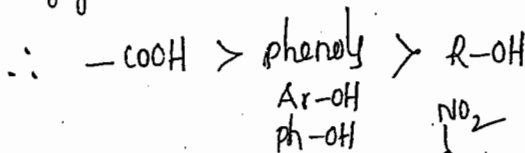 ∴ –COOH > phenols > R–OH
Ar–OH
Ph–OH
NO₂